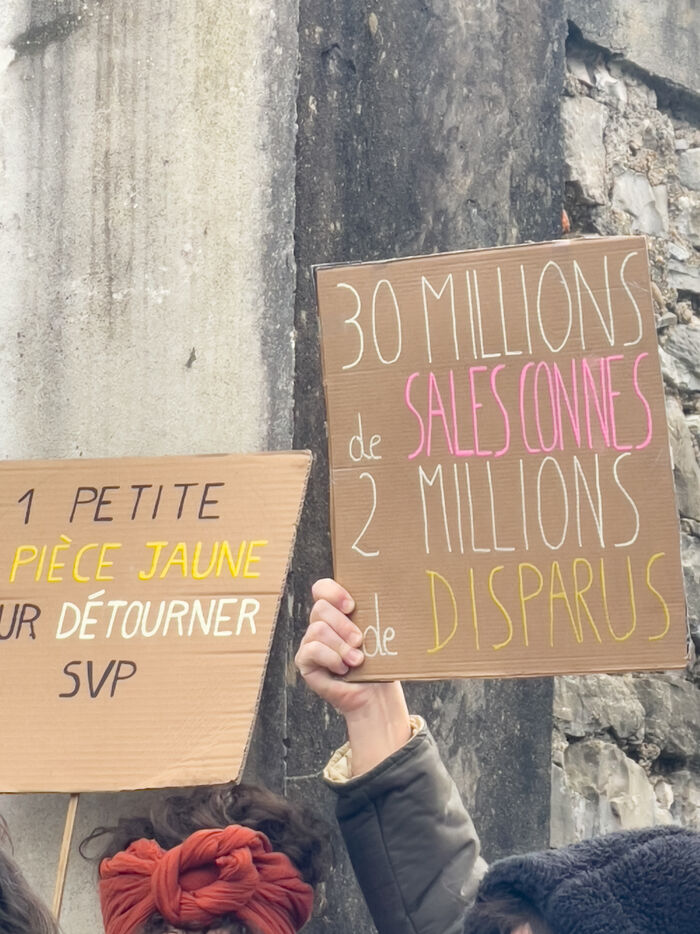 1 PETITE
PIÈCE JAUNE
UR DÉTOURNER
SVP
30 MILLIONS
de SALES CONNES
2 MILLIONS
de DISPARUS